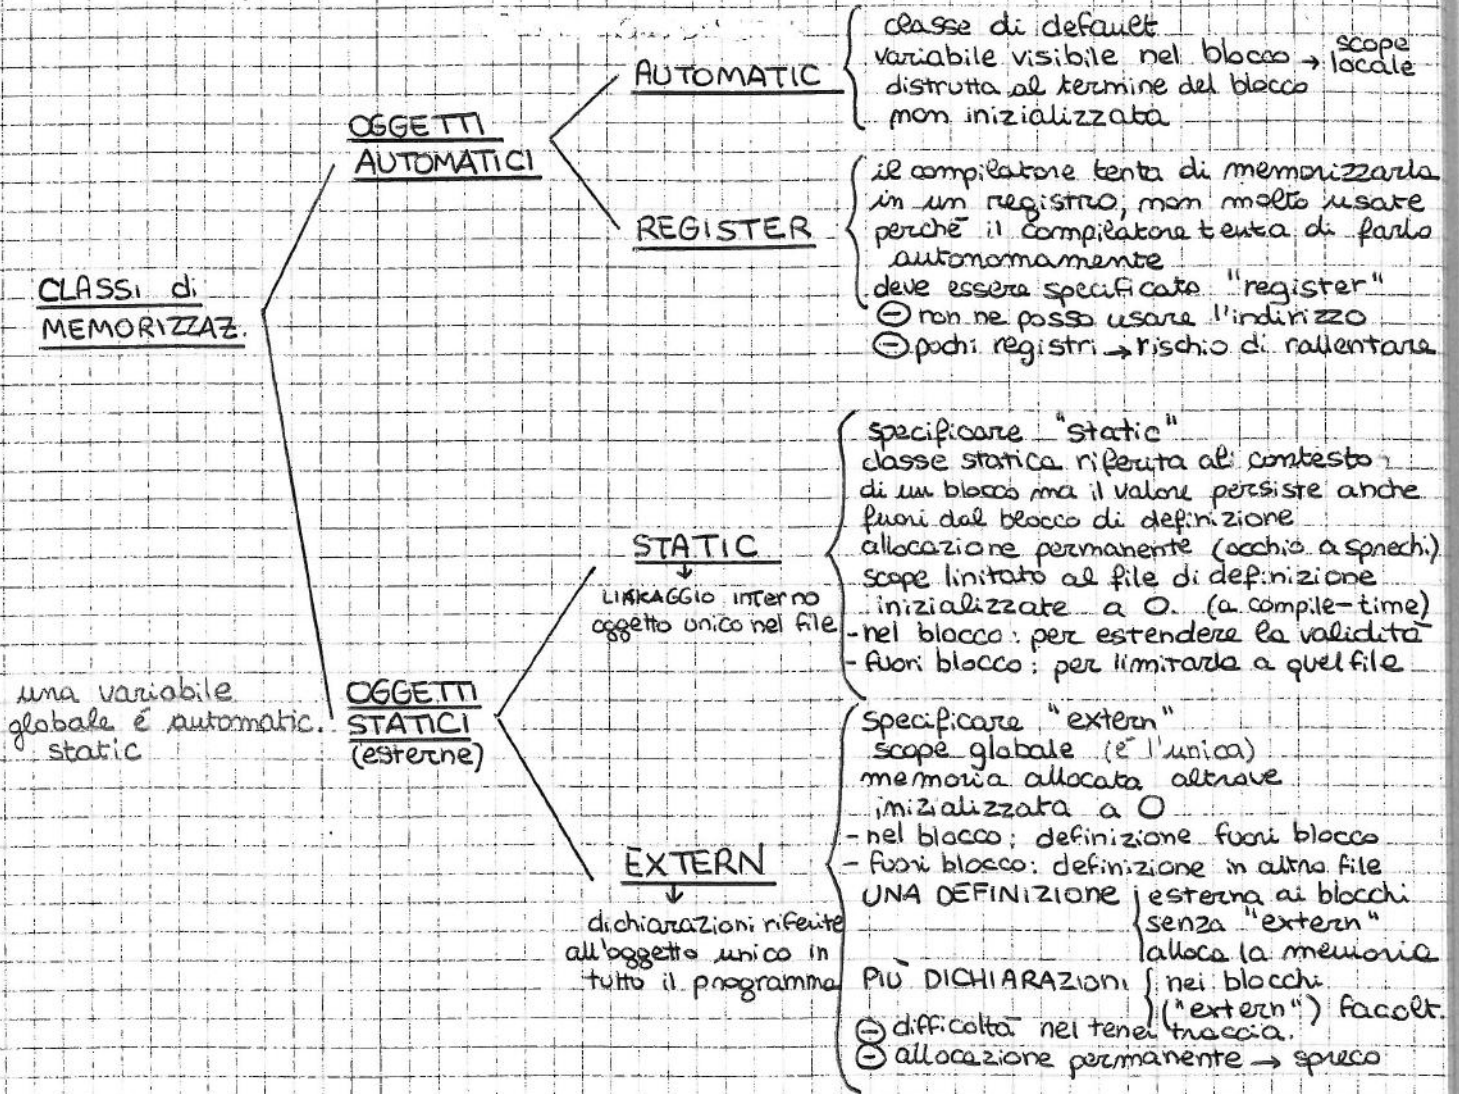 CLASSI di
MEMORIZZAZ.
OGGETTI
AUTOMATICI
AUTOMATIC
classe di default
variabile visibile nel blocco → scope
locale
distrutta al termine del blocco
non inizializzata
REGISTER
il compilatore tenta di memorizzarla
in un registro, non molto usate
perché il compilatore tenta di farlo
autonomamente
deve essere specificato "register"
⊖ non ne posso usare l'indirizzo
⊖ pochi registri → rischio di rallentare
una variabile
globale é automatic.
static
OGGETTI
STATICI
(esterne)
STATIC
↓
LINKAGGIO interno
oggetto unico nel file
specificare "static"
classe statica riferita al contesto
di un blocco ma il valore persiste anche
fuori dal blocco di definizione
allocazione permanente (occhio a sprechi)
scope limitato al file di definizione
inizializzate a 0. (a compile-time)
- nel blocco: per estendere la validità
- fuori blocco: per limitarla a quel file
EXTERN
↓
dichiarazioni riferite
all'oggetto unico in
tutto il programma
specificare "extern"
scope globale (é l'unica)
memoria allocata altrove
inizializzata a 0
- nel blocco: definizione fuori blocco
- fuori blocco: definizione in altro file
UNA DEFINIZIONE { esterna ai blocchi
senza "extern"
alloca la memoria
PIÙ DICHIARAZIONI { nei blocchi
("extern") facolt.
⊖ difficoltà nel tener traccia.
⊖ allocazione permanente → spreco